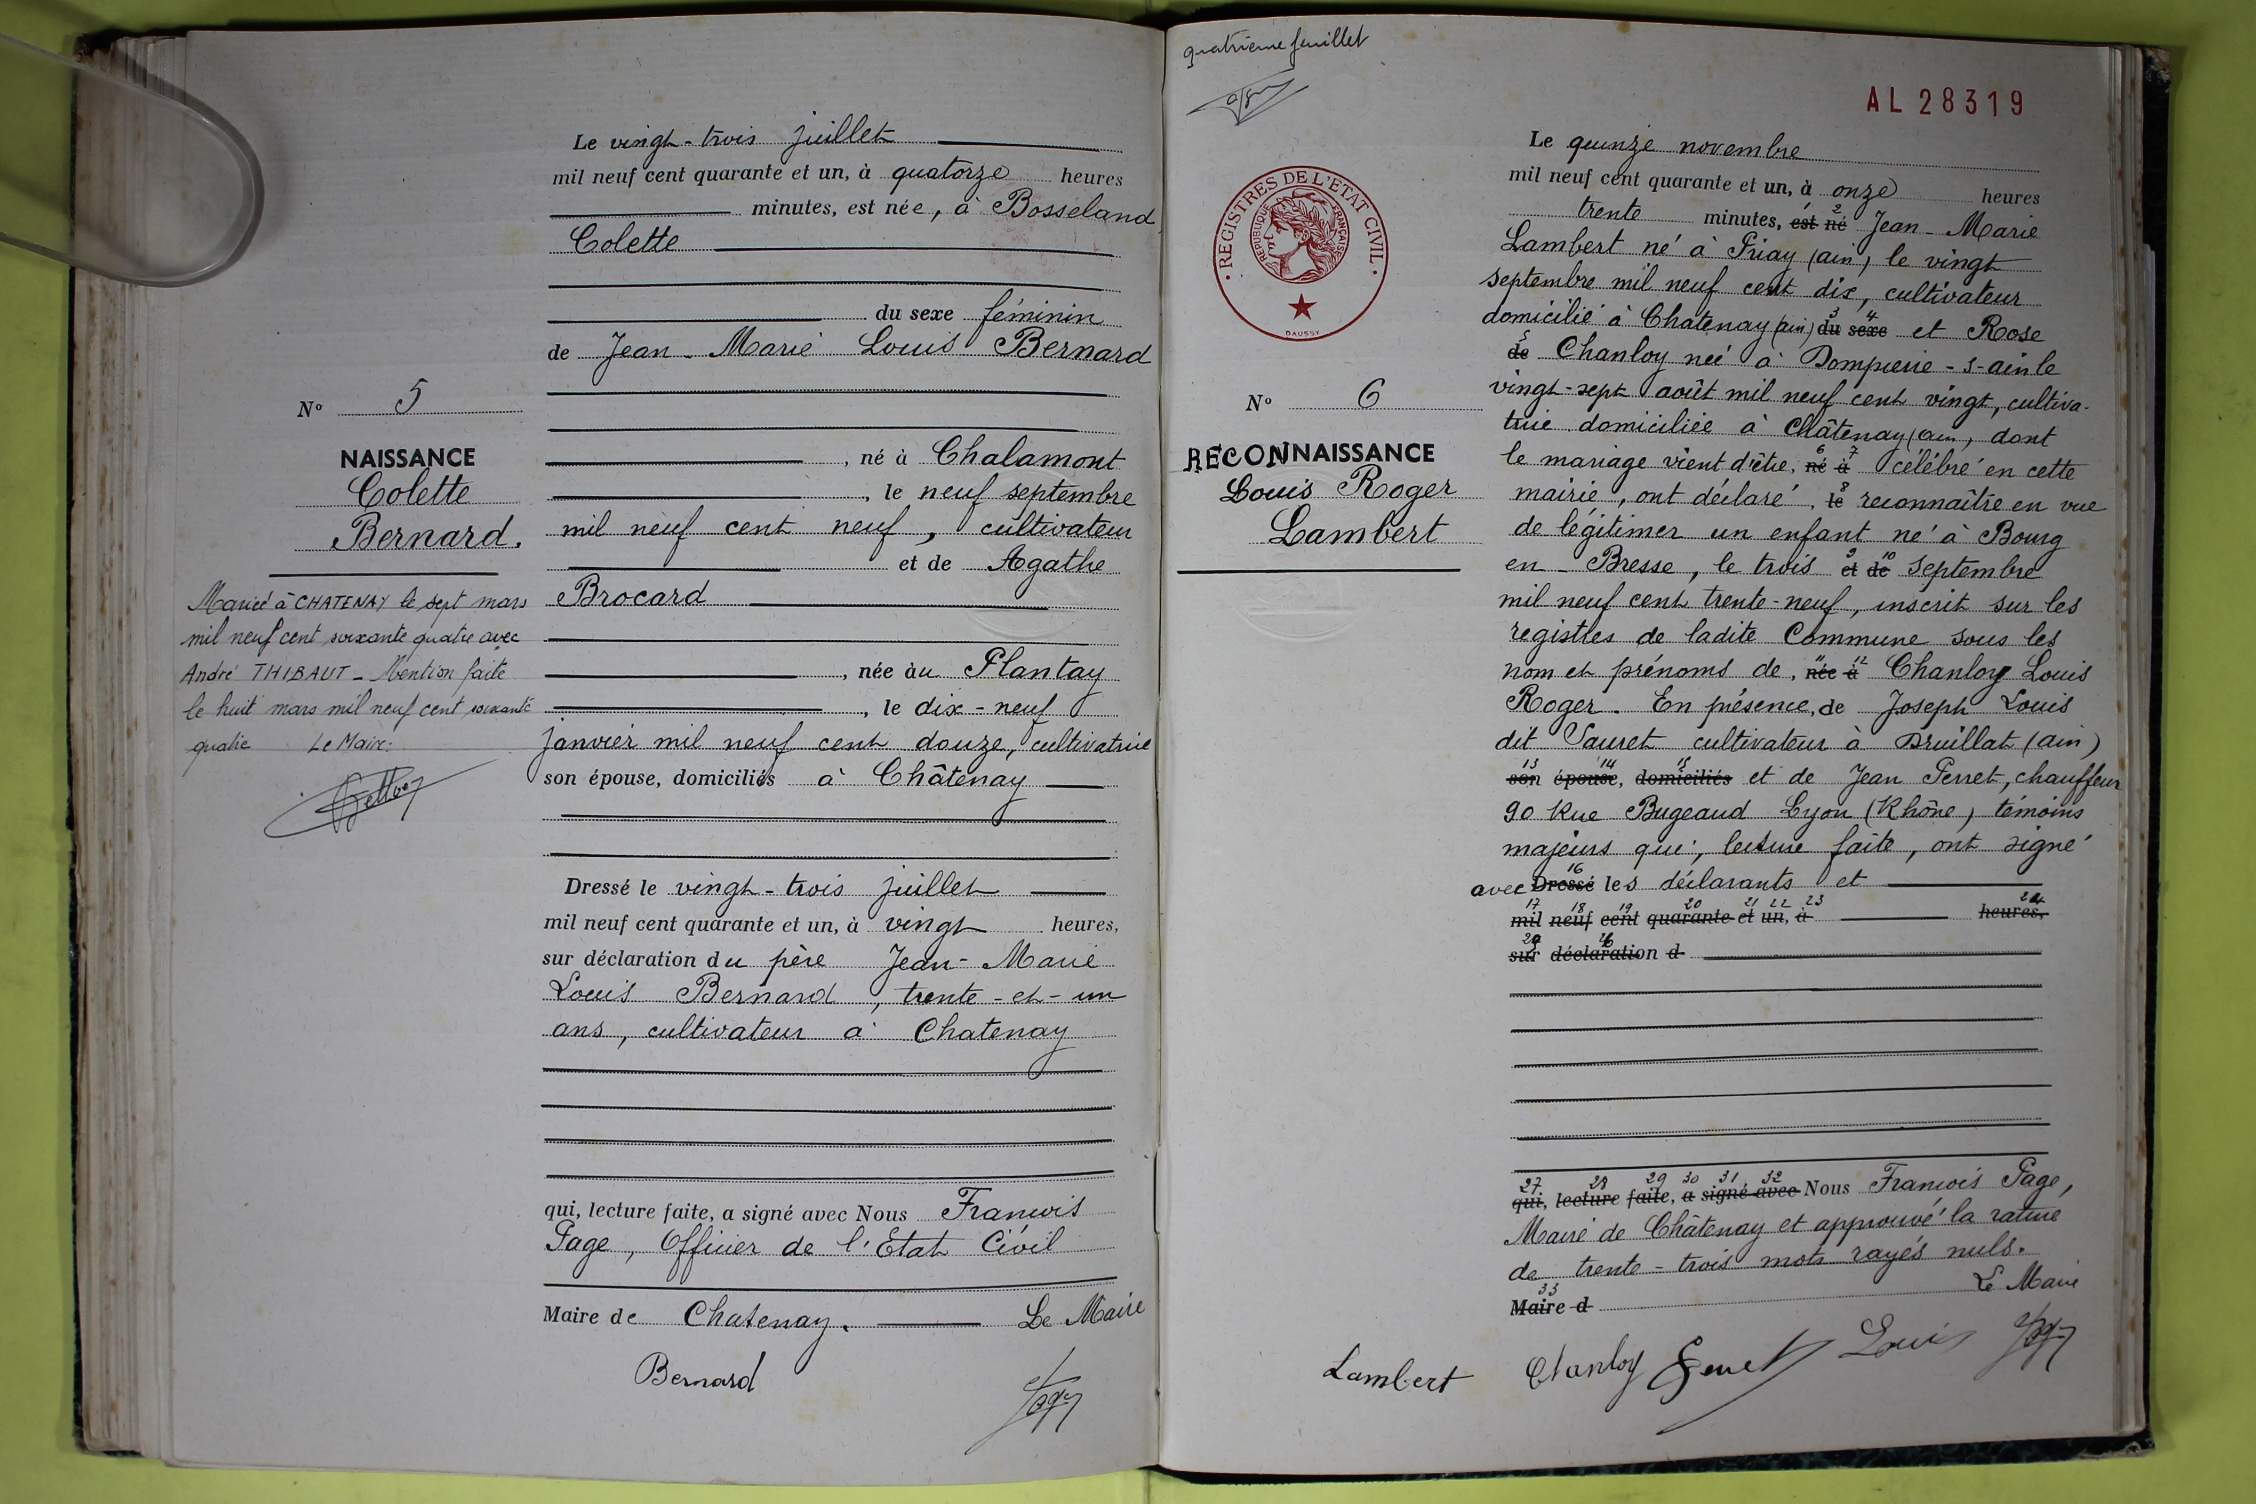 Le vingt-trois juillet
mil neuf cent quarante et un, à quatorze heures
minutes, est née, à Bosseland
Colette
du sexe féminin
de Jean-Marie Louis Bernard
N° 5
NAISSANCE
Colette
Bernard.
, né à Chalamont
, le neuf septembre
mil neuf cent neuf, cultivateur
et de Agathe
Brocard
, née au Plantay
, le dix-neuf
janvier mil neuf cent douze, cultivatrice
son épouse, domiciliés à Châtenay
Mariée à CHATENAY le sept mars
mil neuf cent soixante quatre avec
André THIBAUT - Mention faite
le huit mars mil neuf cent soixante
quatre Le Maire:
Dressé le vingt-trois juillet
mil neuf cent quarante et un, à vingt heures,
sur déclaration du père Jean-Marie
Louis Bernard, trente-et-un
ans, cultivateur à Chatenay
qui, lecture faite, a signé avec Nous François
Page, Officier de l'Etat Civil
Maire de Chatenay. Le Maire
Bernard
quatrième feuillet
AL 28319
REGISTRES DE L'ETAT CIVIL
REPUBLIQUE FRANÇAISE
DAUSSY
N° 6
RECONNAISSANCE
Louis Roger
Lambert
Le quinze novembre
mil neuf cent quarante et un, à onze heures
1 2
trente minutes, est né Jean-Marie
Lambert né à Priay (ain), le vingt
septembre mil neuf cent dix, cultivateur
3 4
domicilié à Chatenay (ain) du sexe et Rose
5
de Chanloy née à Dompierre-s-ain le
vingt-sept août mil neuf cent vingt, cultiva-
trice domiciliée à Châtenay (ain, dont
6 7
le mariage vient d'être, né à célébré en cette
8
mairie, ont déclaré, le reconnaître en vue
de légitimer un enfant né à Bourg
9 10
en-Bresse, le trois et de septembre
mil neuf cent trente-neuf, inscrit sur les
registres de ladite Commune sous les
11 12
nom et prénoms de, née à Chanloy Louis
Roger. En présence, de Joseph Louis
dit Sauret cultivateur à Druillat (ain)
13 14 15
son épouse, domiciliés et de Jean Perret, chauffeur
90 Rue Bugeaud Lyon (Rhône) témoins
majeurs qui, lecture faite, ont signé
16
avec Dressé les déclarants et
17 18 19 20 21 22 23 24
mil neuf cent quarante et un, à heures,
sur déclaration d
27 28 29 30 31 32
qui, lecture faite, a signé avec Nous François Page,
Maire de Châtenay et approuvé la rature
de trente-trois mots rayés nuls.
Le Maire
33
Maire d
Lambert Chanloy Louis